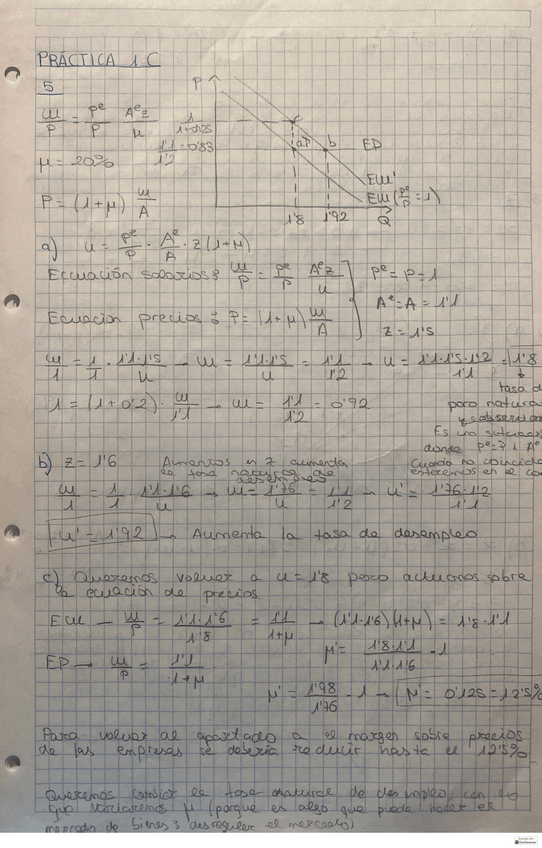 PRÁCTICA 1 C
5
w/P = P^e/P · A^e z/μ
μ = 20%
P = (1+μ) w/A
P
1/(1+0'25)
1'1/1'2 = 0'83
b
EP
EW'
EW (P^e/P = 1)
1'8 1'92 Q
a) u = P^e/P · A^e/A · z (1+μ)
Ecuación salarios: w/P = P^e/P · A^e z/u
P^e = P = 1
A^e = A = 1'1
z = 1'5
Ecuacion precios: P = (1+μ) w/A
w/1 = 1/1 · 1'1·1'5/u → w = 1'1·1'5/u = 1'1/1'2 → u = 1'1·1'5·1'2/1'1 = 1'8
1 = (1+0'2) · w/1'1 → w = 1'1/1'2 = 0'92
tasa d
paro natura
y observad
Es una situac
donde P^e=P y A^e
Cuando no coincida
estaremos en el co
b) z = 1'6 Aumentos in z aumenta
la tasa natural de
desempleo
w/1 = 1/1 · 1'1·1'6/u → w = 1'76/u = 1'1/1'2 → u' = 1'76·1'2/1'1
u' = 1'92 → Aumenta la tasa de desempleo
c) Queremos volver a u = 1'8 pero actuamos sobre
la ecuación de precios.
EW → w/P = 1'1·1'6/1'8 = 1'1/(1+μ) → (1'1·1'6)(1+μ) = 1'8·1'1
EP → w/P = 1'1/(1+μ)
μ' = 1'8·1'1/1'1·1'6 - 1
μ' = 1'98/1'76 - 1 → μ' = 0'125 = 12'5%
Para volver al apartado a el margen sobre precios
de las empresas se debería reducir hasta el 12'5%.
Queremos cambiar la tasa natural de desempleo, con lo
que variaremos μ (porque es algo que puede hacer el
mercado de bienes: desregular el mercado)